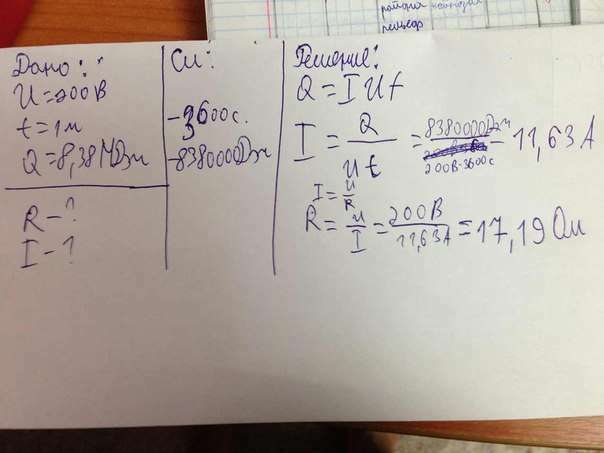 Дано:
U=200В
t=1ч
Q=8,38МДж
R-?
I-?
Си:
-3600с.
-8380000Дж
Решение:
Q=IUt
I=Q/Ut=8380000Дж/200В·3600с=11,63А
I=U/R
R=U/I=200В/11,63А=17,19Ом